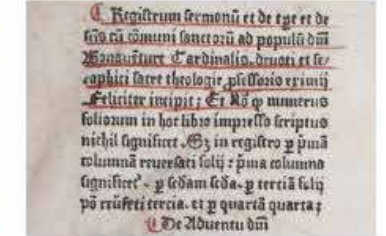 Registrum sermonū et de tp̄e et de
sc̄is cū cōmuni sanctorū ad populū dn̄i
Bonauenture Cardinalis, deuoti et se/
raphici sacre theologie ꝓfessoris eximij
Feliciter incipit; Et Nō ꝙ numerus
foliorum in hoc libro impresso scriptus
nichil significet. Sꝫ in registro ꝑ pͥmā
columnā reuersati folij : pͥma columna
significet. ꝑ scdam scda. ꝑ terciā folij
tercia. et ꝑ quartā quarta;
De Aduentu dn̄i